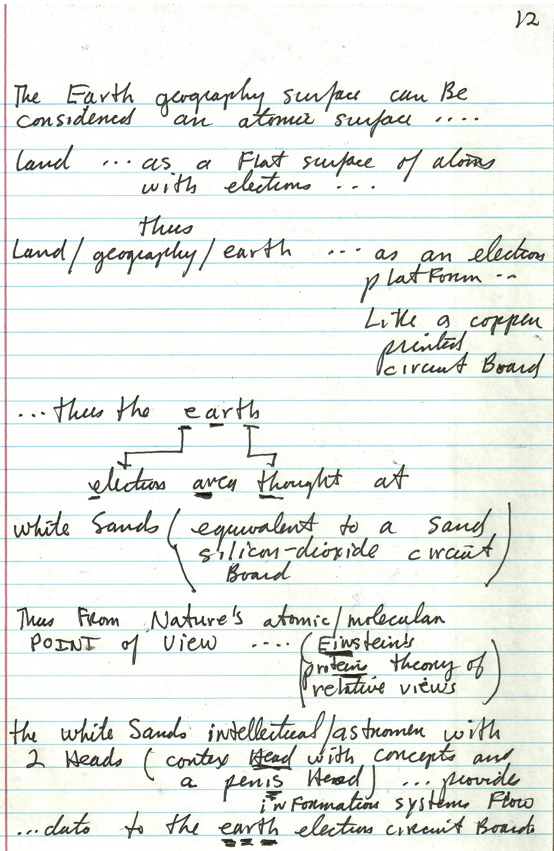 12
The Earth geography surface can Be
considered an atomic surface ....
Land ... as a Flat surface of atoms
with electrons ...
thus
Land/geography/earth ... as an electron
platform ..
Like a copper
printed
circuit Board
...thus the earth
electron area thought at
white Sands (equivalent to a sand
silicon-dioxide circuit
Board)
Thus From Nature's atomic/molecular
POINT of View .... (Einstein's
protein theory of
relative views)
the white Sands intellectual/astronomer with
2 Heads (cortex Head with concepts and
a penis Head) ... provide
information systems Flow
...data to the earth electron circuit Board